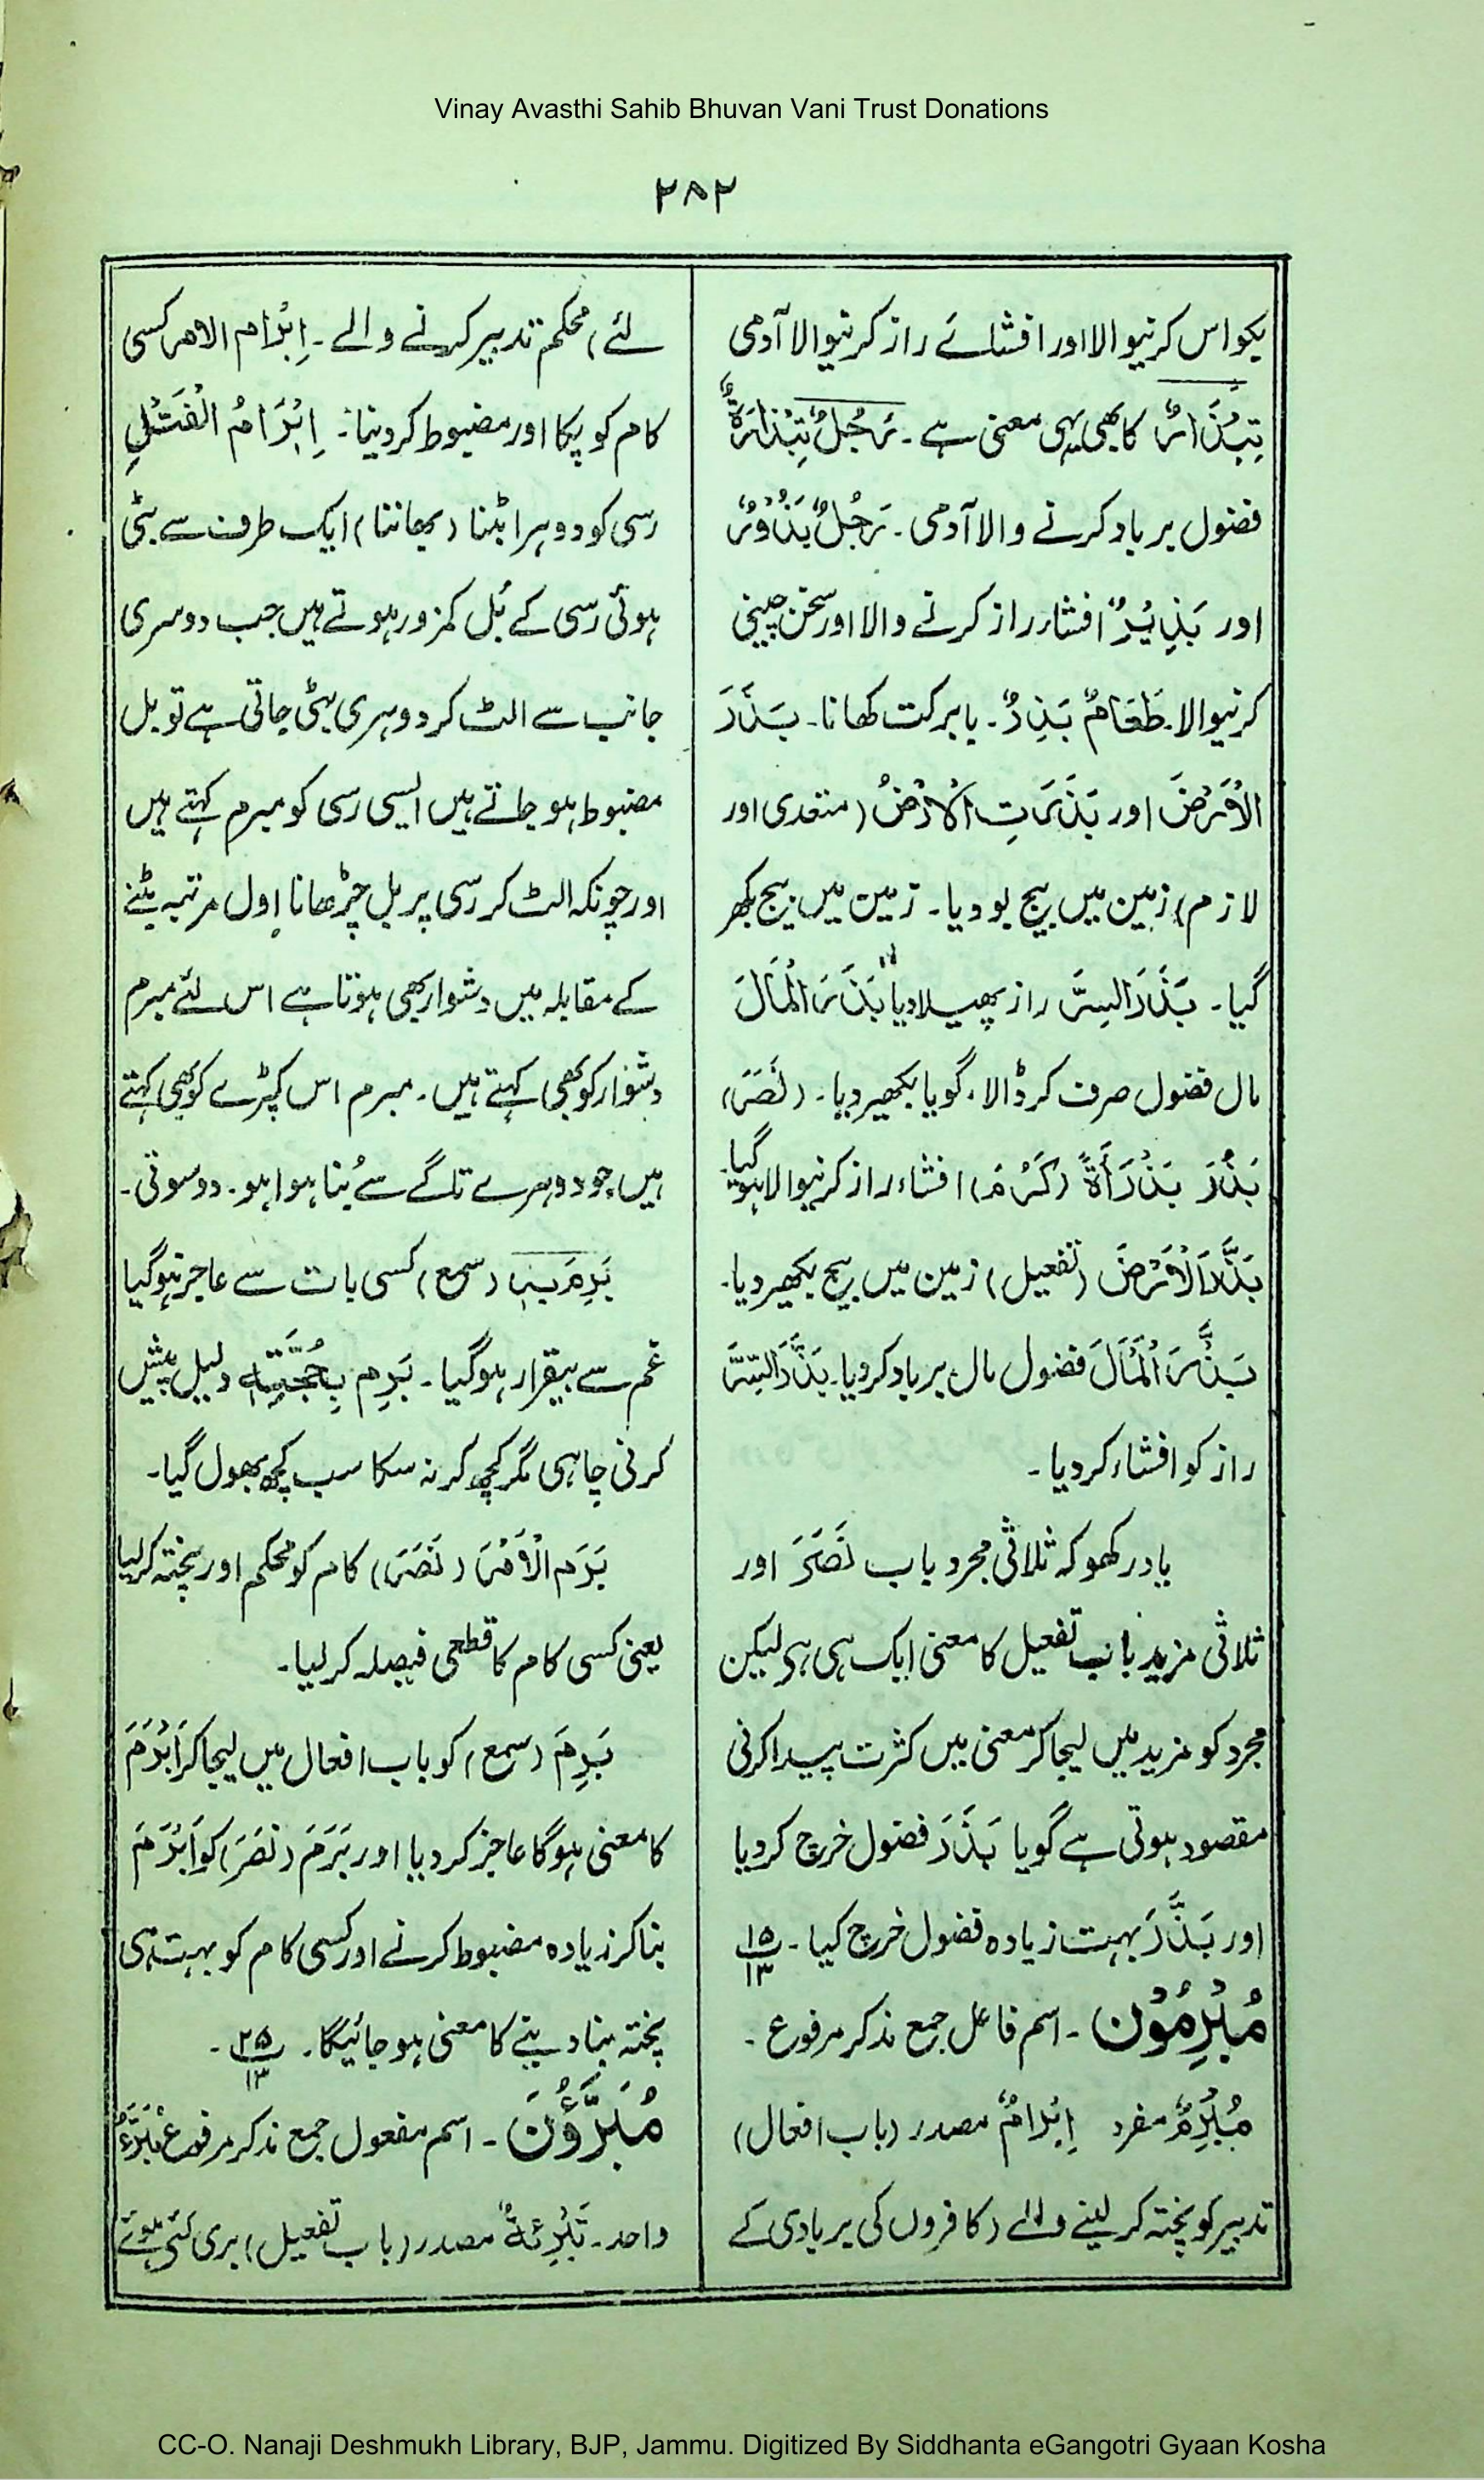 Vinay Avasthi Sahib Bhuvan Vani Trust Donations
۲۸۲
بکواس کرنیوالا اور افشائے راز کرنیوالا آدمی
تِبْذَارٌ کا بھی یہی معنی ہے ۔ رَجُلٌ تِبْذَارَةٌ
فضول برباد کرنے والا آدمی ۔ رَجُلٌ بَذُوْرٌ
اور بَذِیْرٌ افشار راز کرنے والا اور سخن چینی
کرنیوالا۔ طَعَامٌ بَذِرٌ ۔ بابرکت کھانا ۔ بَذَرَ
الْأَرْضَ اور بَذَرَتِ الْأَرْضُ (متعدی اور
لازم) زمین میں بیج بو دیا ۔ زمین میں بیج بکھر
گیا ۔ بَذَرَ السِّرَّ راز پھیلا دیا بَذَرَ الْمَالَ
مال فضول صرف کر ڈالا، گویا بکھیر دیا ۔ (نَصَرَ)
بَذُرَ بَذُرَأَةً (کَرُمَ) افشاء راز کرنیوالا ہو گیا۔
بَذَّرَ الْأَرْضَ (تفعیل) زمین میں بیج بکھیر دیا۔
بَذَّرَ الْمَالَ فضول مال برباد کر دیا۔ بَذَّرَ السِّرَّ
راز کو افشاء کر دیا ۔
یاد رکھو کہ ثلاثی مجرد باب نَصَرَ اور
ثلاثی مزید باب تفعیل کا معنی ایک ہی ہے لیکن
مجرد کو مزید میں لیجا کر معنی میں کثرت پیدا کرنی
مقصود ہوتی ہے گویا بَذَرَ فضول خرچ کر دیا
اور بَذَّرَ بہت زیادہ فضول خرچ کیا ۔ ۱۵/۱۳
مُبْرِمُوْن ۔ اسم فاعل جمع مذکر مرفوع ۔
مُبْرِمٌ مفرد اِبْرَامٌ مصدر (باب افعال)
تدبیر کو پختہ کر لینے والے (کافروں کی بربادی کے
لئے) محکم تدبیر کرنے والے ۔ اِبْرَام الامر کسی
کام کو پکا اور مضبوط کر دینا ۔ اِبْرَامُ الْفَتْلِ
رسی کو دوہرا بٹنا (بھانننا) ایک طرف سے بٹی
ہوئی رسی کے بَل کمزور ہوتے ہیں جب دوسری
جانب سے الٹ کر دوہری بٹی جاتی ہے تو بل
مضبوط ہو جاتے ہیں ایسی رسی کو مبرم کہتے ہیں
اور چونکہ الٹ کر رسی پر بل چڑھانا اول مرتبہ بٹنے
کے مقابلہ میں دشوار بھی ہوتا ہے اس لئے مبرم
دشوار کو بھی کہتے ہیں ۔ مبرم اس کپڑے کو بھی کہتے
ہیں جو دوہرے تاگے سے بُنا ہوا ہو ۔ دوسوتی ۔
بَرِمَ بِہٖ (سمع) کسی بات سے عاجز ہو گیا
غم سے بیقرار ہو گیا ۔ بَرِم بِحُجَّتِهٖ دلیل پیش
کرنی چاہی مگر کچھ کر نہ سکا سب کچھ بھول گیا ۔
بَرَم الْأَمْرَ (نَصَرَ) کام کو محکم اور پختہ کر لیا
یعنی کسی کام کا قطعی فیصلہ کر لیا ۔
بَرِمَ (سمع) کو باب افعال میں لیجا کر اَبْرَمَ
کا معنی ہوگا عاجز کر دیا اور بَرَمَ (نَصَرَ) کو اَبْرَمَ
بنا کر زیادہ مضبوط کرنے اور کسی کام کو بہت ہی
پختہ بنا دینے کا معنی ہو جائیگا ۔ ۲۵/۱۳ ۔
مُبَرَّؤُنَ ۔ اسم مفعول جمع مذکر مرفوع مُبَرَّءٌ
واحد ۔ تَبْرِئَةٌ مصدر (باب تفعیل) بری کئے ہوئے
CC-O. Nanaji Deshmukh Library, BJP, Jammu. Digitized By Siddhanta eGangotri Gyaan Kosha